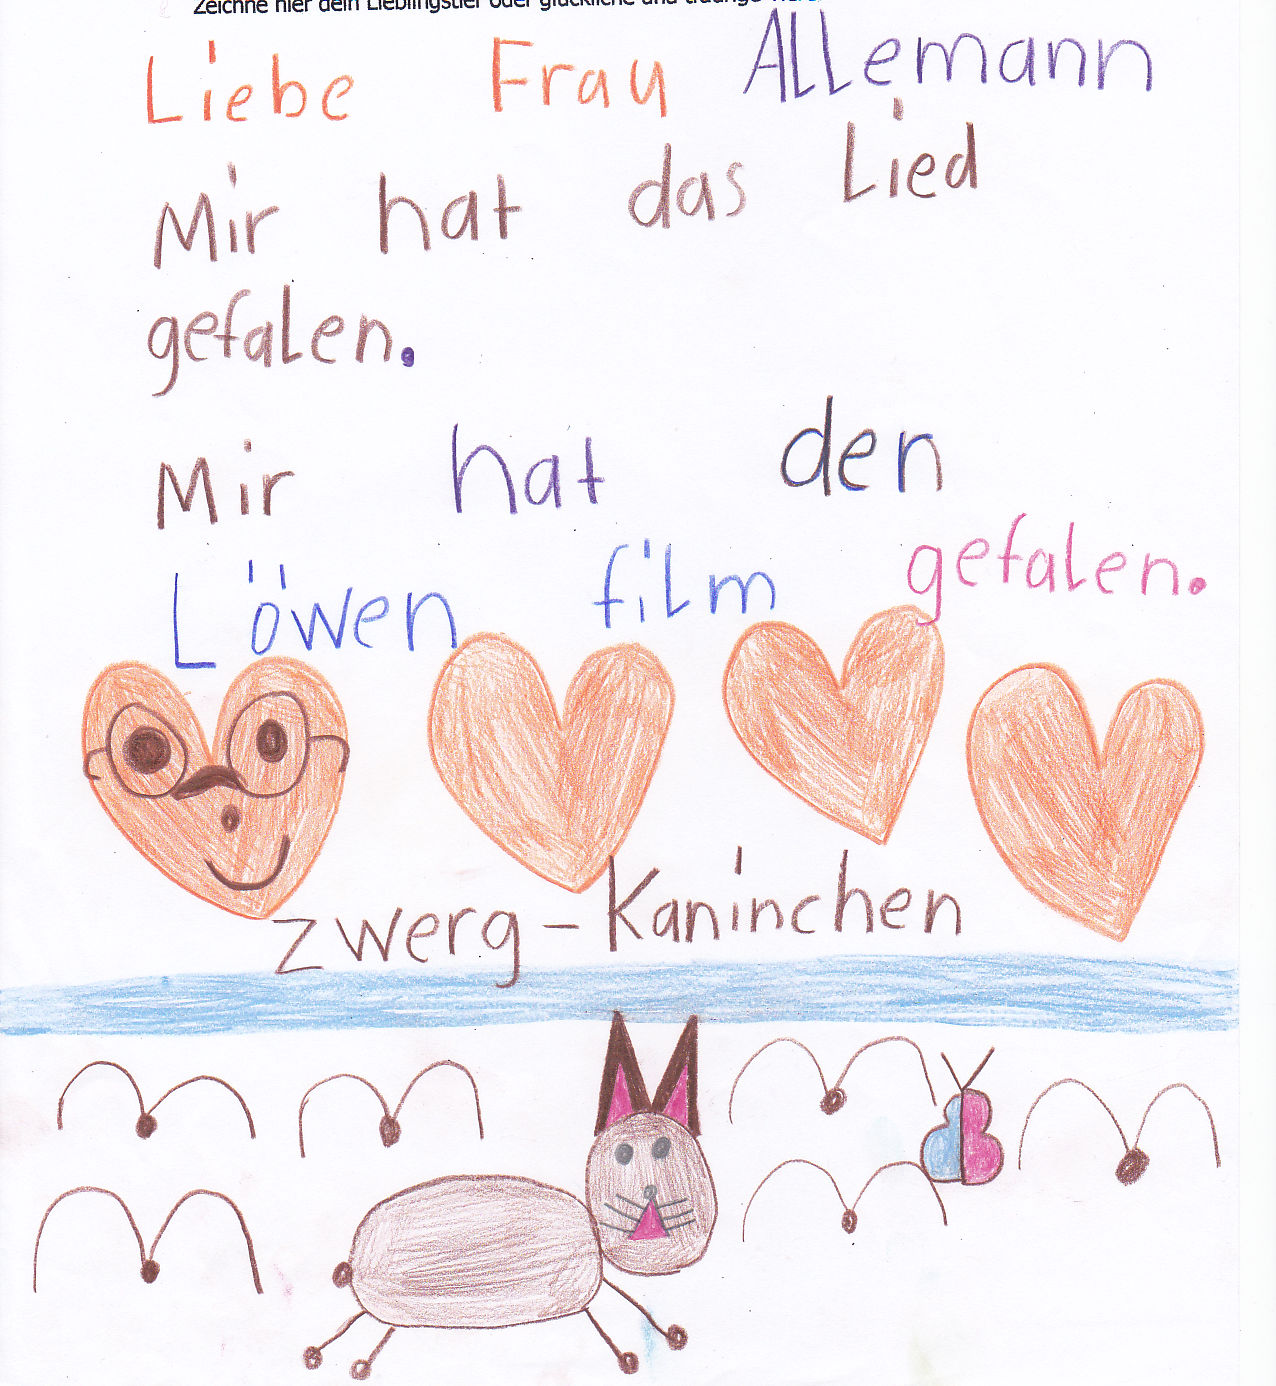 Zeichne hier dein Lieblingstier oder glückliche und traurige
Liebe Frau Allemann
Mir hat das Lied
gefalen.
Mir hat den
Löwen film gefalen.
zwerg-Kaninchen